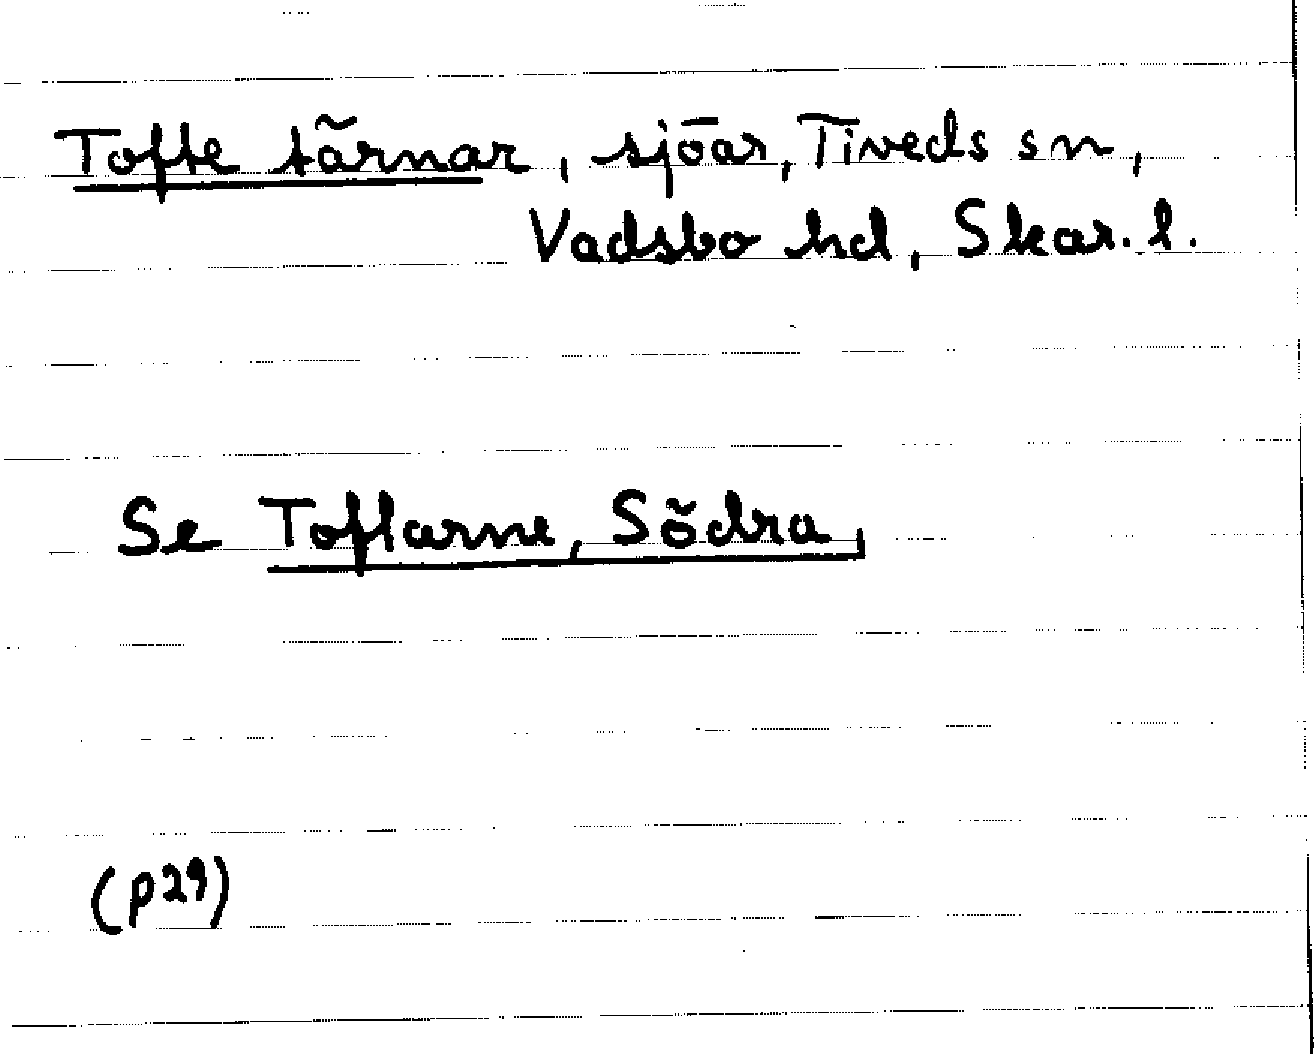 Tofte tärnar, sjöar, Tiveds sn,
Vadsbo hd, Skar. l.
Se Toftarne, Södra,
(p29)